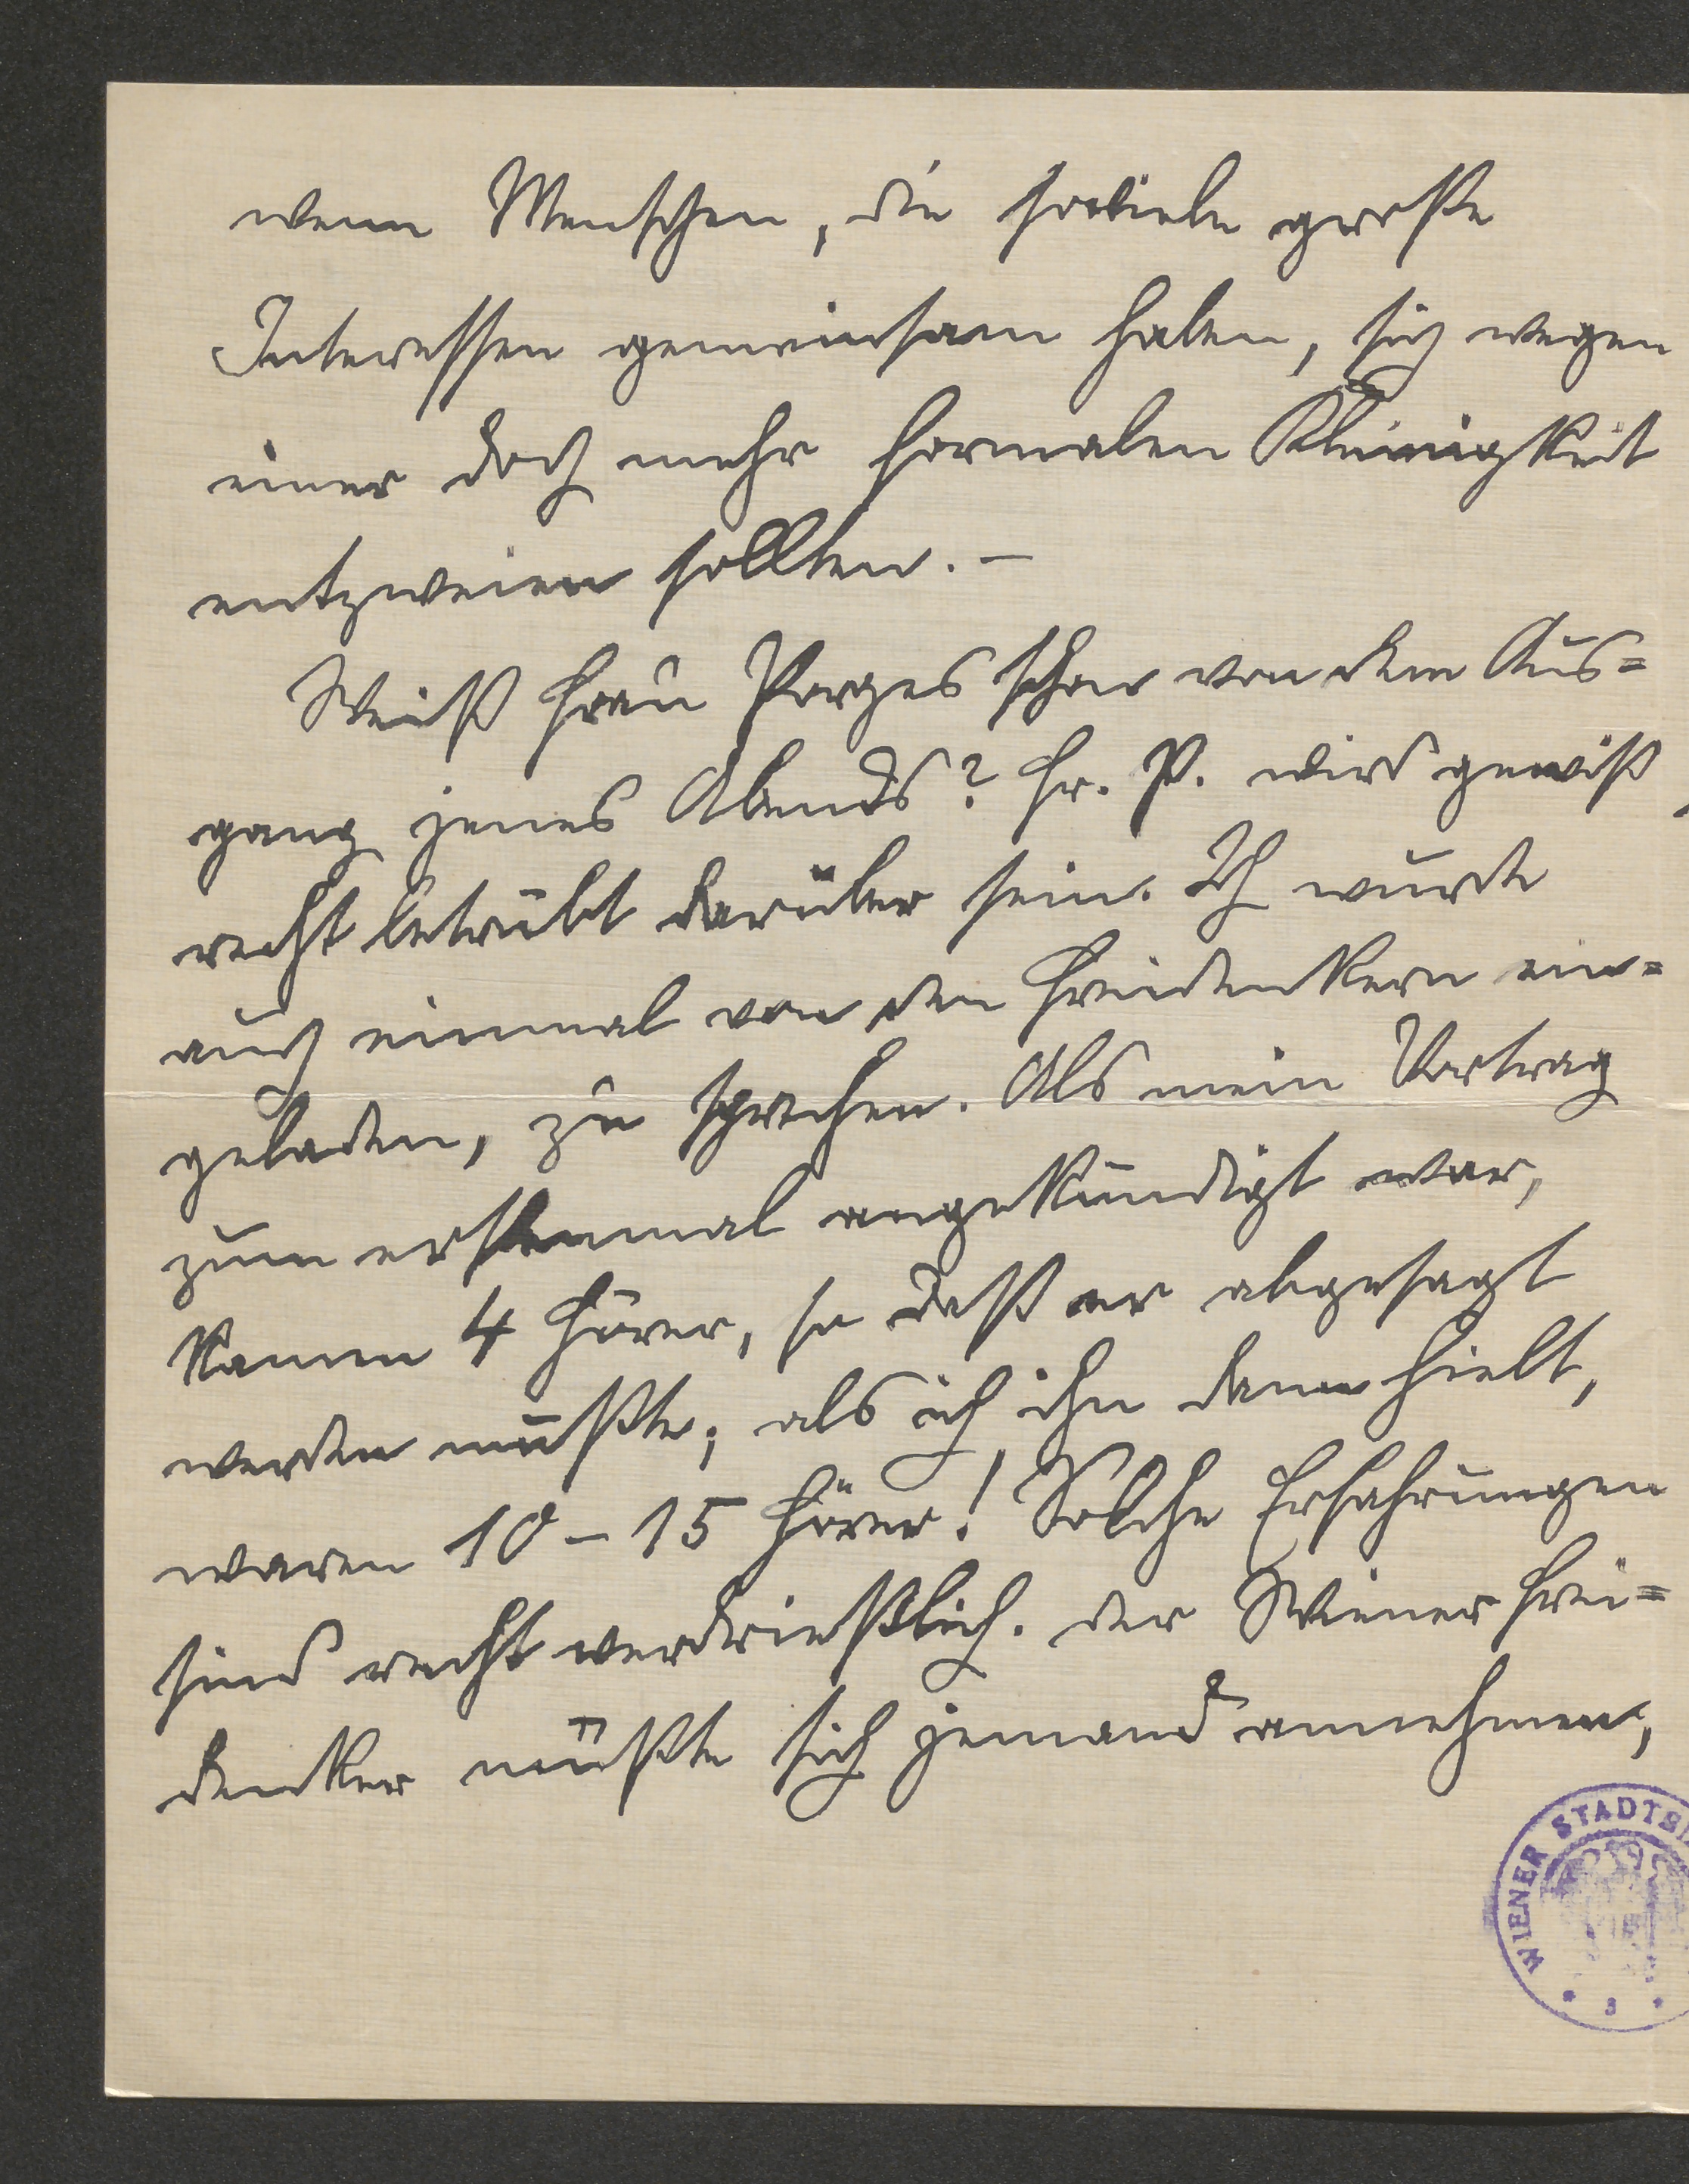 wenn Menschen, die soviele große
Interessen gemeinsam haben, sich wegen
einer doch mehr formalen Kleinigkeit
entzweien sollten. –
Weiß Frau Porges schon von dem Aus=
gang jenes Abends? Fr. P. wird gewiß
recht betrübt darüber sein. Ich wurde
auch einmal von den Freidenkern ein=
geladen, zu sprechen. Als mein Vortrag
zum erstenmal angekündigt war,
kamen 4 Hörer, so daß er abgesagt
werden mußte; als ich ihn dann hielt,
waren 10–15 Hörer! Solche Erfahrungen
sind recht verdrießlich. Der Wiener Frei=
denker müßte sich jemand annehmen,
WIENER STADTBI
* 3 *